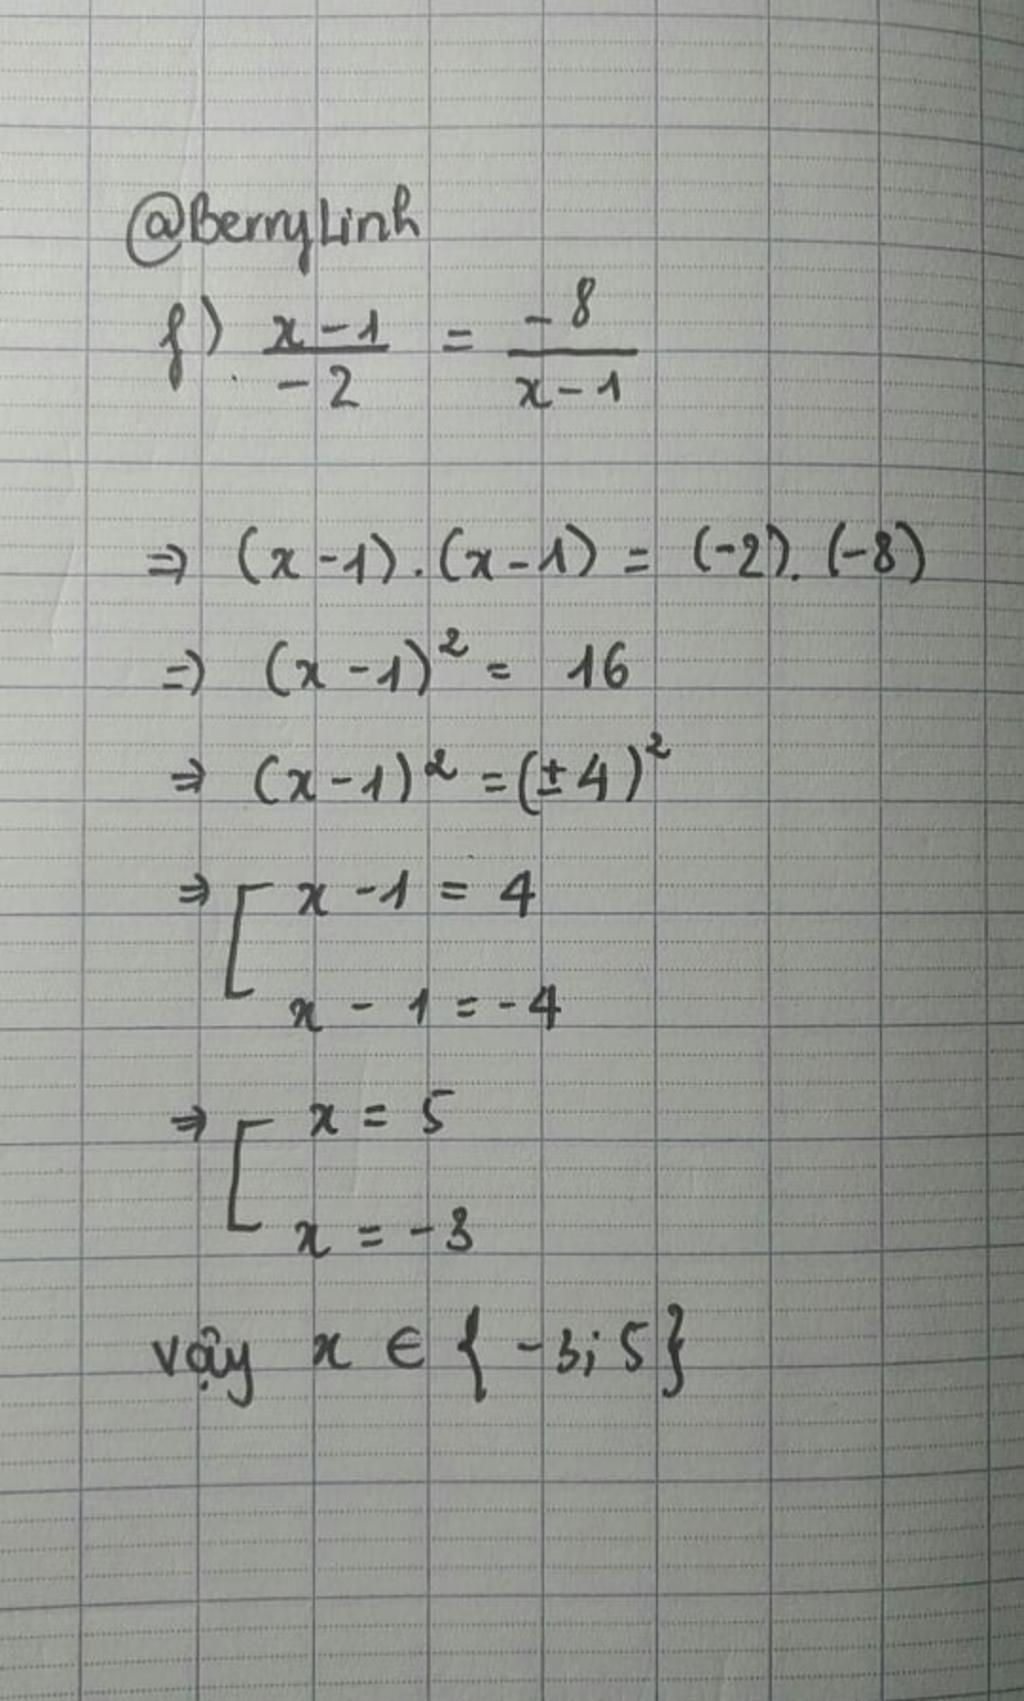 @BerryLinh
f) (x-1)/(-2) = (-8)/(x-1)
⇒ (x-1).(x-1) = (-2).(-8)
=) (x-1)² = 16
⇒ (x-1)² = (±4)²
⇒ [ x-1 = 4
x - 1 = -4
⇒ [ x = 5
x = -3
vậy x ∈ { -3; 5}